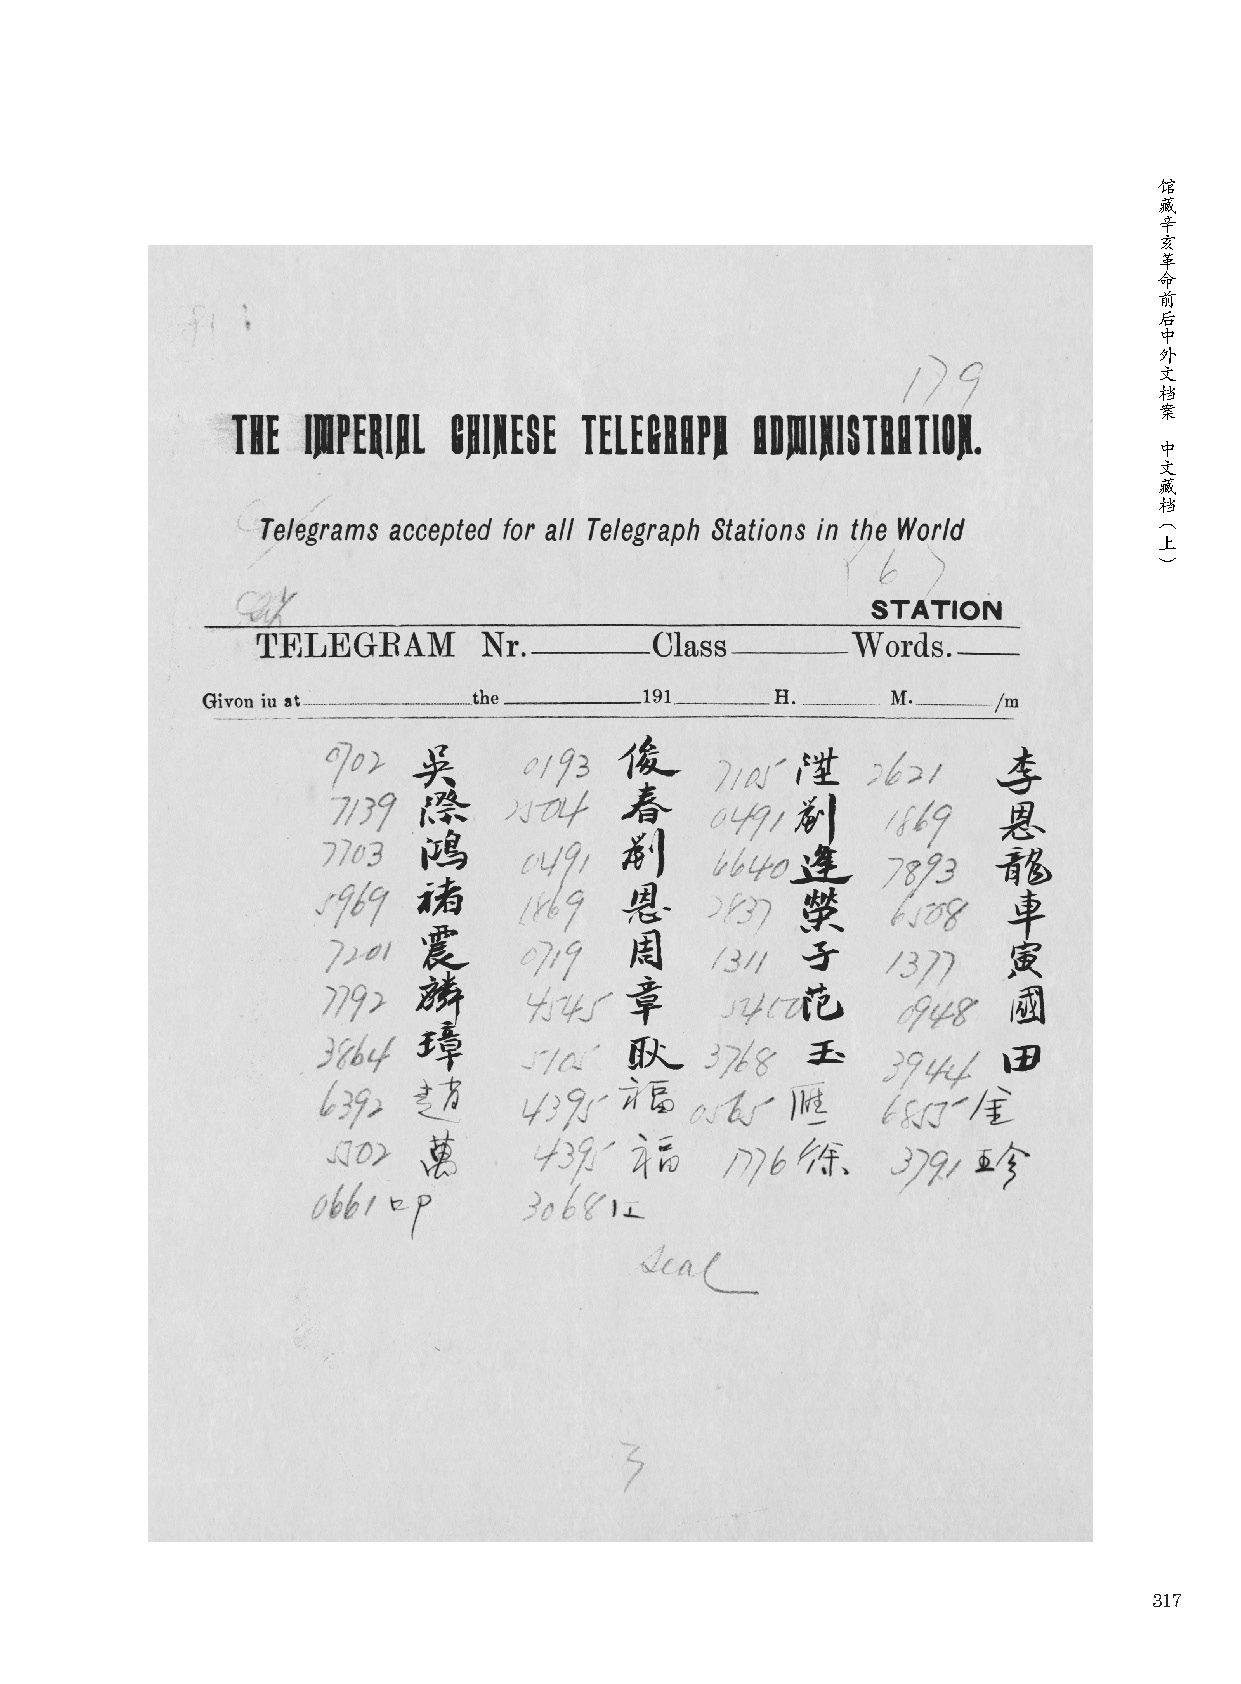 馆藏辛亥革命前后中外文档案 中文藏档（上）
179
THE IMPERIAL CHINESE TELEGRAPH ADMINISTRATION.
Telegrams accepted for all Telegraph Stations in the World
(6)
STATION
TELEGRAM Nr. Class Words.
Givon iu at the 191 H. M. /m
2621 李
1869 恩
7893 龍
6508 車
1377 寅
0948 國
3944 田
6855 金
3791 珍
7105 陞
0491 劉
6640 逢
2837 榮
1311 子
5400 范
3768 玉
0565 匯
1776 徐
0193 俊
2504 春
0491 劉
1869 恩
0719 周
4545 章
5105 耿
4395 福
4395 福
3068 江
0702 吳
7139 際
7703 鴻
5969 褚
7201 震
7792 麟
3864 璋
6392 趙
5502 萬
0661 叩
Seal
3
317